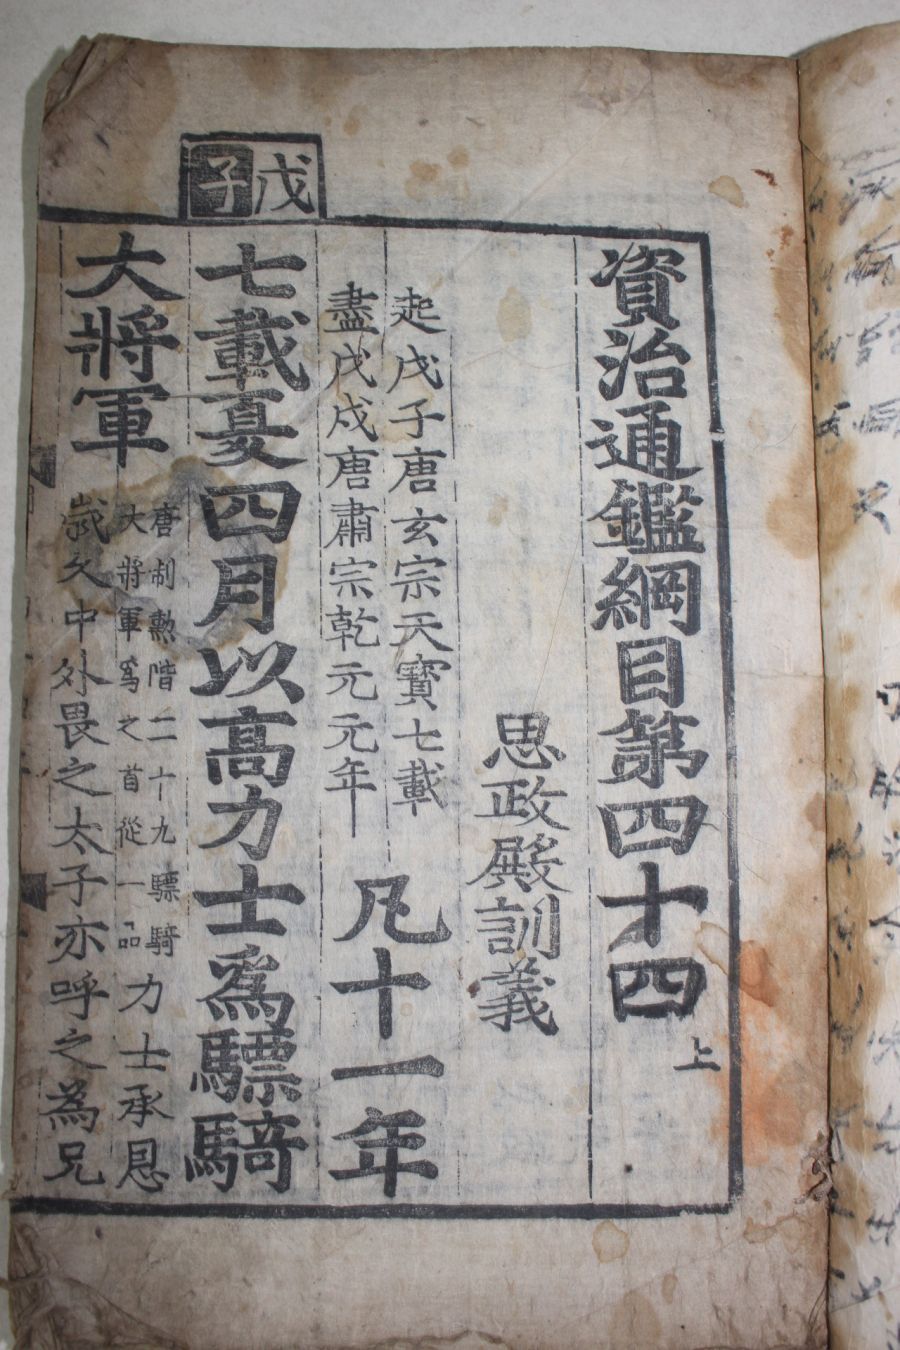 戊子
資治通鑑綱目第四十四上
思政殿訓義
起戊子唐玄宗天寶七載
盡戊戌唐肅宗乾元元年
凡十一年
七載夏四月以高力士爲驃騎
大將軍
唐制勲階二十九驃騎
大將軍爲之首從一品
力士承恩
歲久中外畏之太子亦呼之為兄